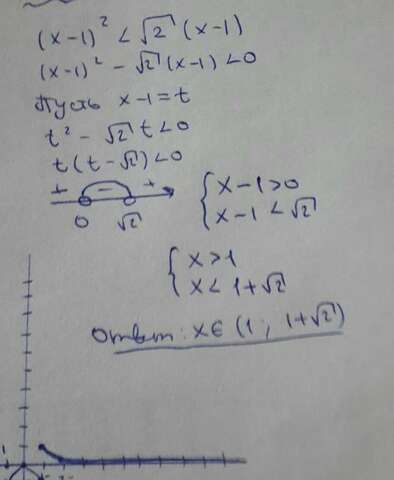 (x-1)² < √2 (x-1)
(x-1)² - √2 (x-1) < 0
Пусть x-1 = t
t² - √2 t < 0
t(t-√2) < 0
+ - +
0 √2
{ x-1 > 0
x-1 < √2
{ x > 1
x < 1+√2
Ответ: x ∈ (1; 1+√2)